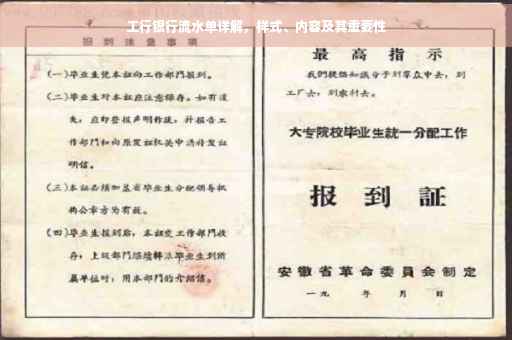 工行银行流水单详解，样式、内容及其重要性
报到注意事项
(一)毕业生凭本证向工作部门报到。
(二)毕业生对本证应注意保存。如有遗
失，应即登报声明作废，并报告工
作部门和向原发证机关申请补发证
明信。
(三)本证必须加盖省毕业生分配领导机
构公章方为有效。
(四)毕业生报到后，本证交工作部门收
存；上级部门继续转派毕业生到所
属单位时，用本部门的介绍信。
最高指示
我们提倡知识分子到群众中去，到
工厂去，到农村去。
大专院校毕业生统一分配工作
报到証
安徽省革命委員会制定
一九 年 月 日